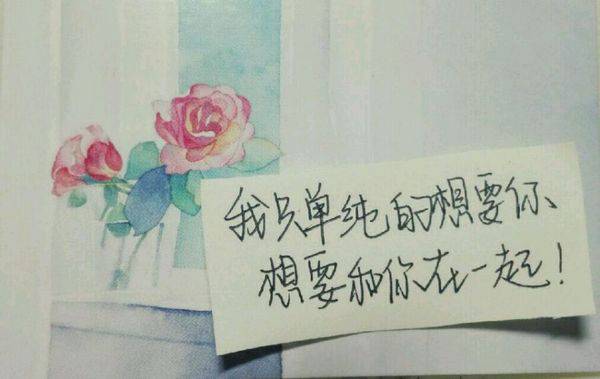 我只单纯的想要你、
想要和你在一起！